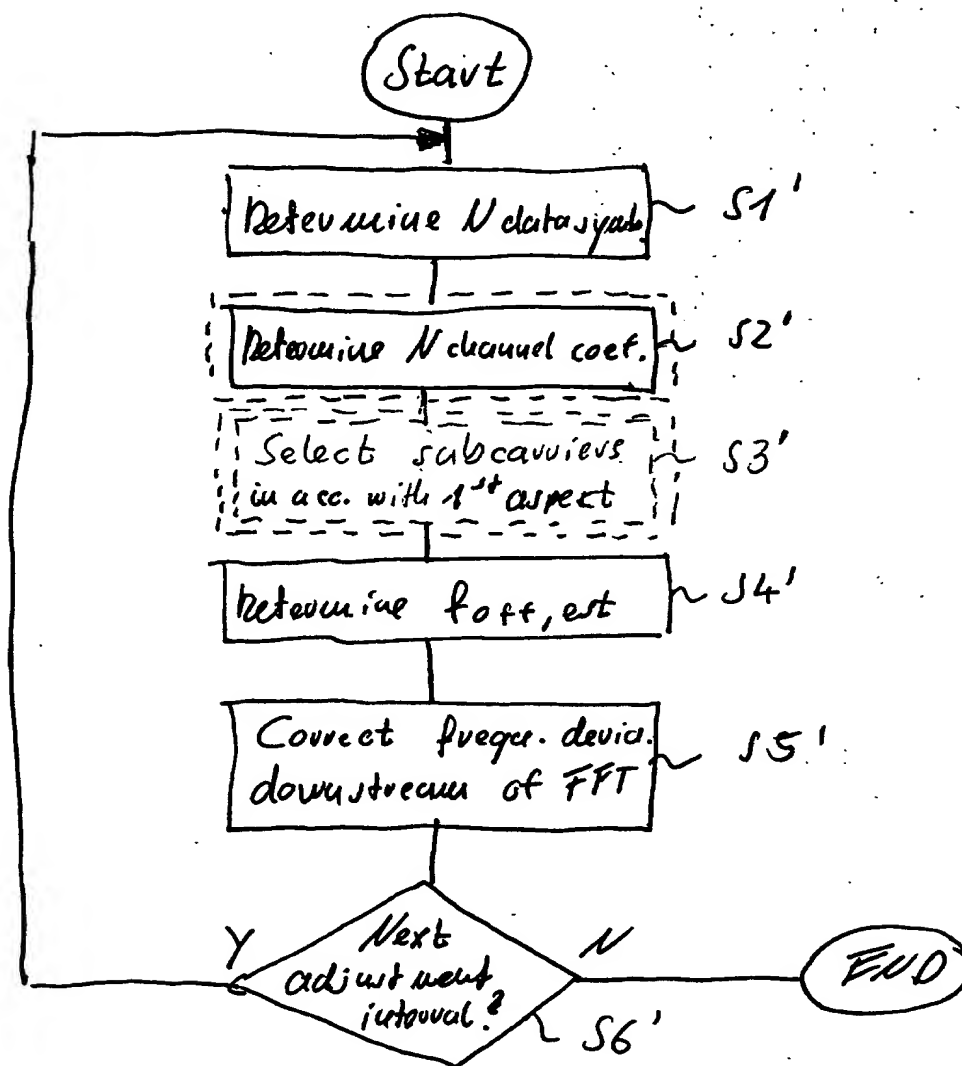 Start
Determine N data symb. S1'
Determine N channel coef. S2'
Select subcarriers S3'
in acc. with 1st aspect
Determine foff,est S4'
Correct frequ. devia. S5'
downstream of FFT
Y Next N
adjustment END
interval? S6'